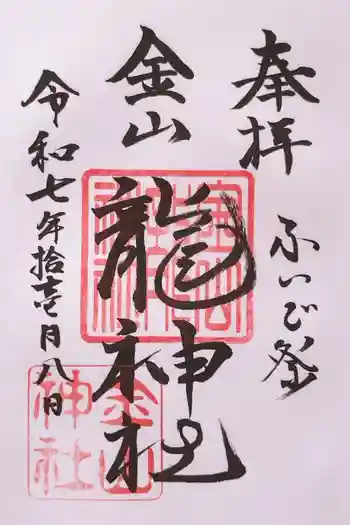 奉拝
ふいご祭
金山
龍神社
令和七年拾壱月八日
金山
神社